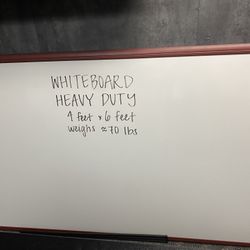 WHITEBOARD
HEAVY DUTY
4 feet x 6 feet
weighs ≈ 70 lbs